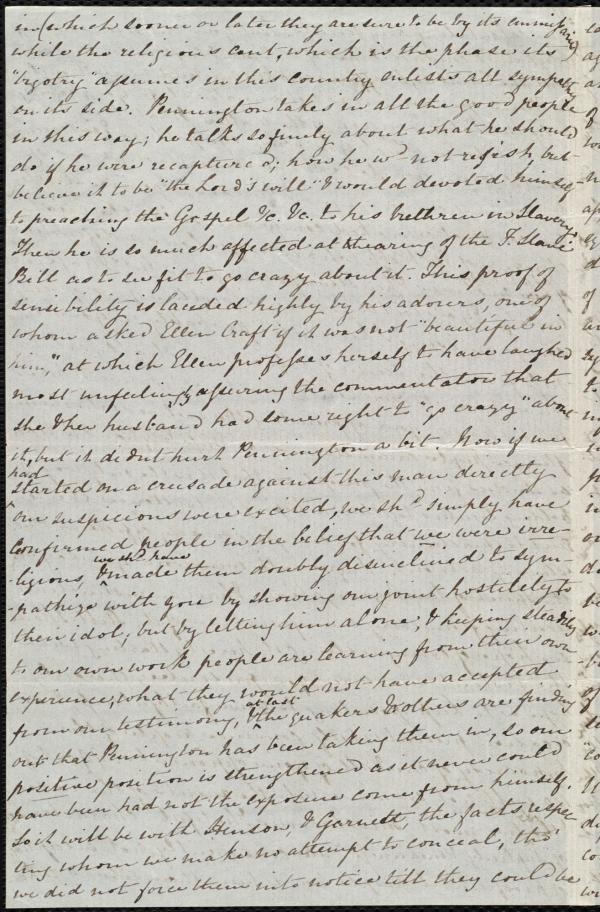 in (which sooner or later they are sure to be by its emissaries)
while the religious cant, which is the phase its
"bigotry" assumes in this country enlists all sympathy
on its side. Pennington takes in all the good people
in this way; he talks so finely about what he should
do if he were recaptured; how he wd not resist, but
believe it to be "the Lord's will" & would devoted himself
to preaching the Gospel &c. &c. to his brethren in Slavery.
Then he is so much affected at hearing of the F. Slave
Bill as to see fit to go crazy about it. This proof of
sensibility is lauded highly by his adorers, one of
whom asked Ellen Craft if it was not "beautiful in
him," at which Ellen professes herself to have laughed
most unfeelingly assuring the commentator that
she & her husband had some right to "go crazy" about
it, but it didnt hurt Pennington a bit. Now if we
had
started on a crusade against this man directly
our suspicions were excited, we shd simply have
confirmed people in the belief that we were irre-
we shd have
-ligious, & made them doubly disinclined to sym-
-pathize with you by showing our joint hostility to
their idol; but by letting him alone, & keeping steadily
to our own work people are learning from their own
experience, what they would not have accepted
at last
from our testimony, & the quakers & others are finding
out that Pennington has been taking them in, so our
positive position is strengthened as it never could
have been had not the exposure come from himself.
So it will be with Henson, & Garnett, the facts respec-
ting whom we make no attempt to conceal, tho'
we did not force them into notice till they could be